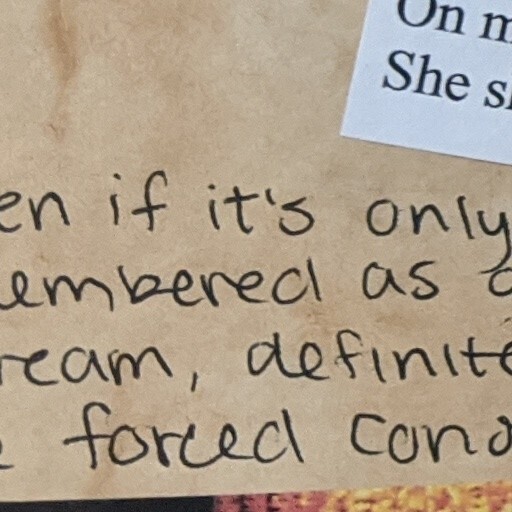 On m
She sl
en if it's only
embered as a
ream, definite
forced cond